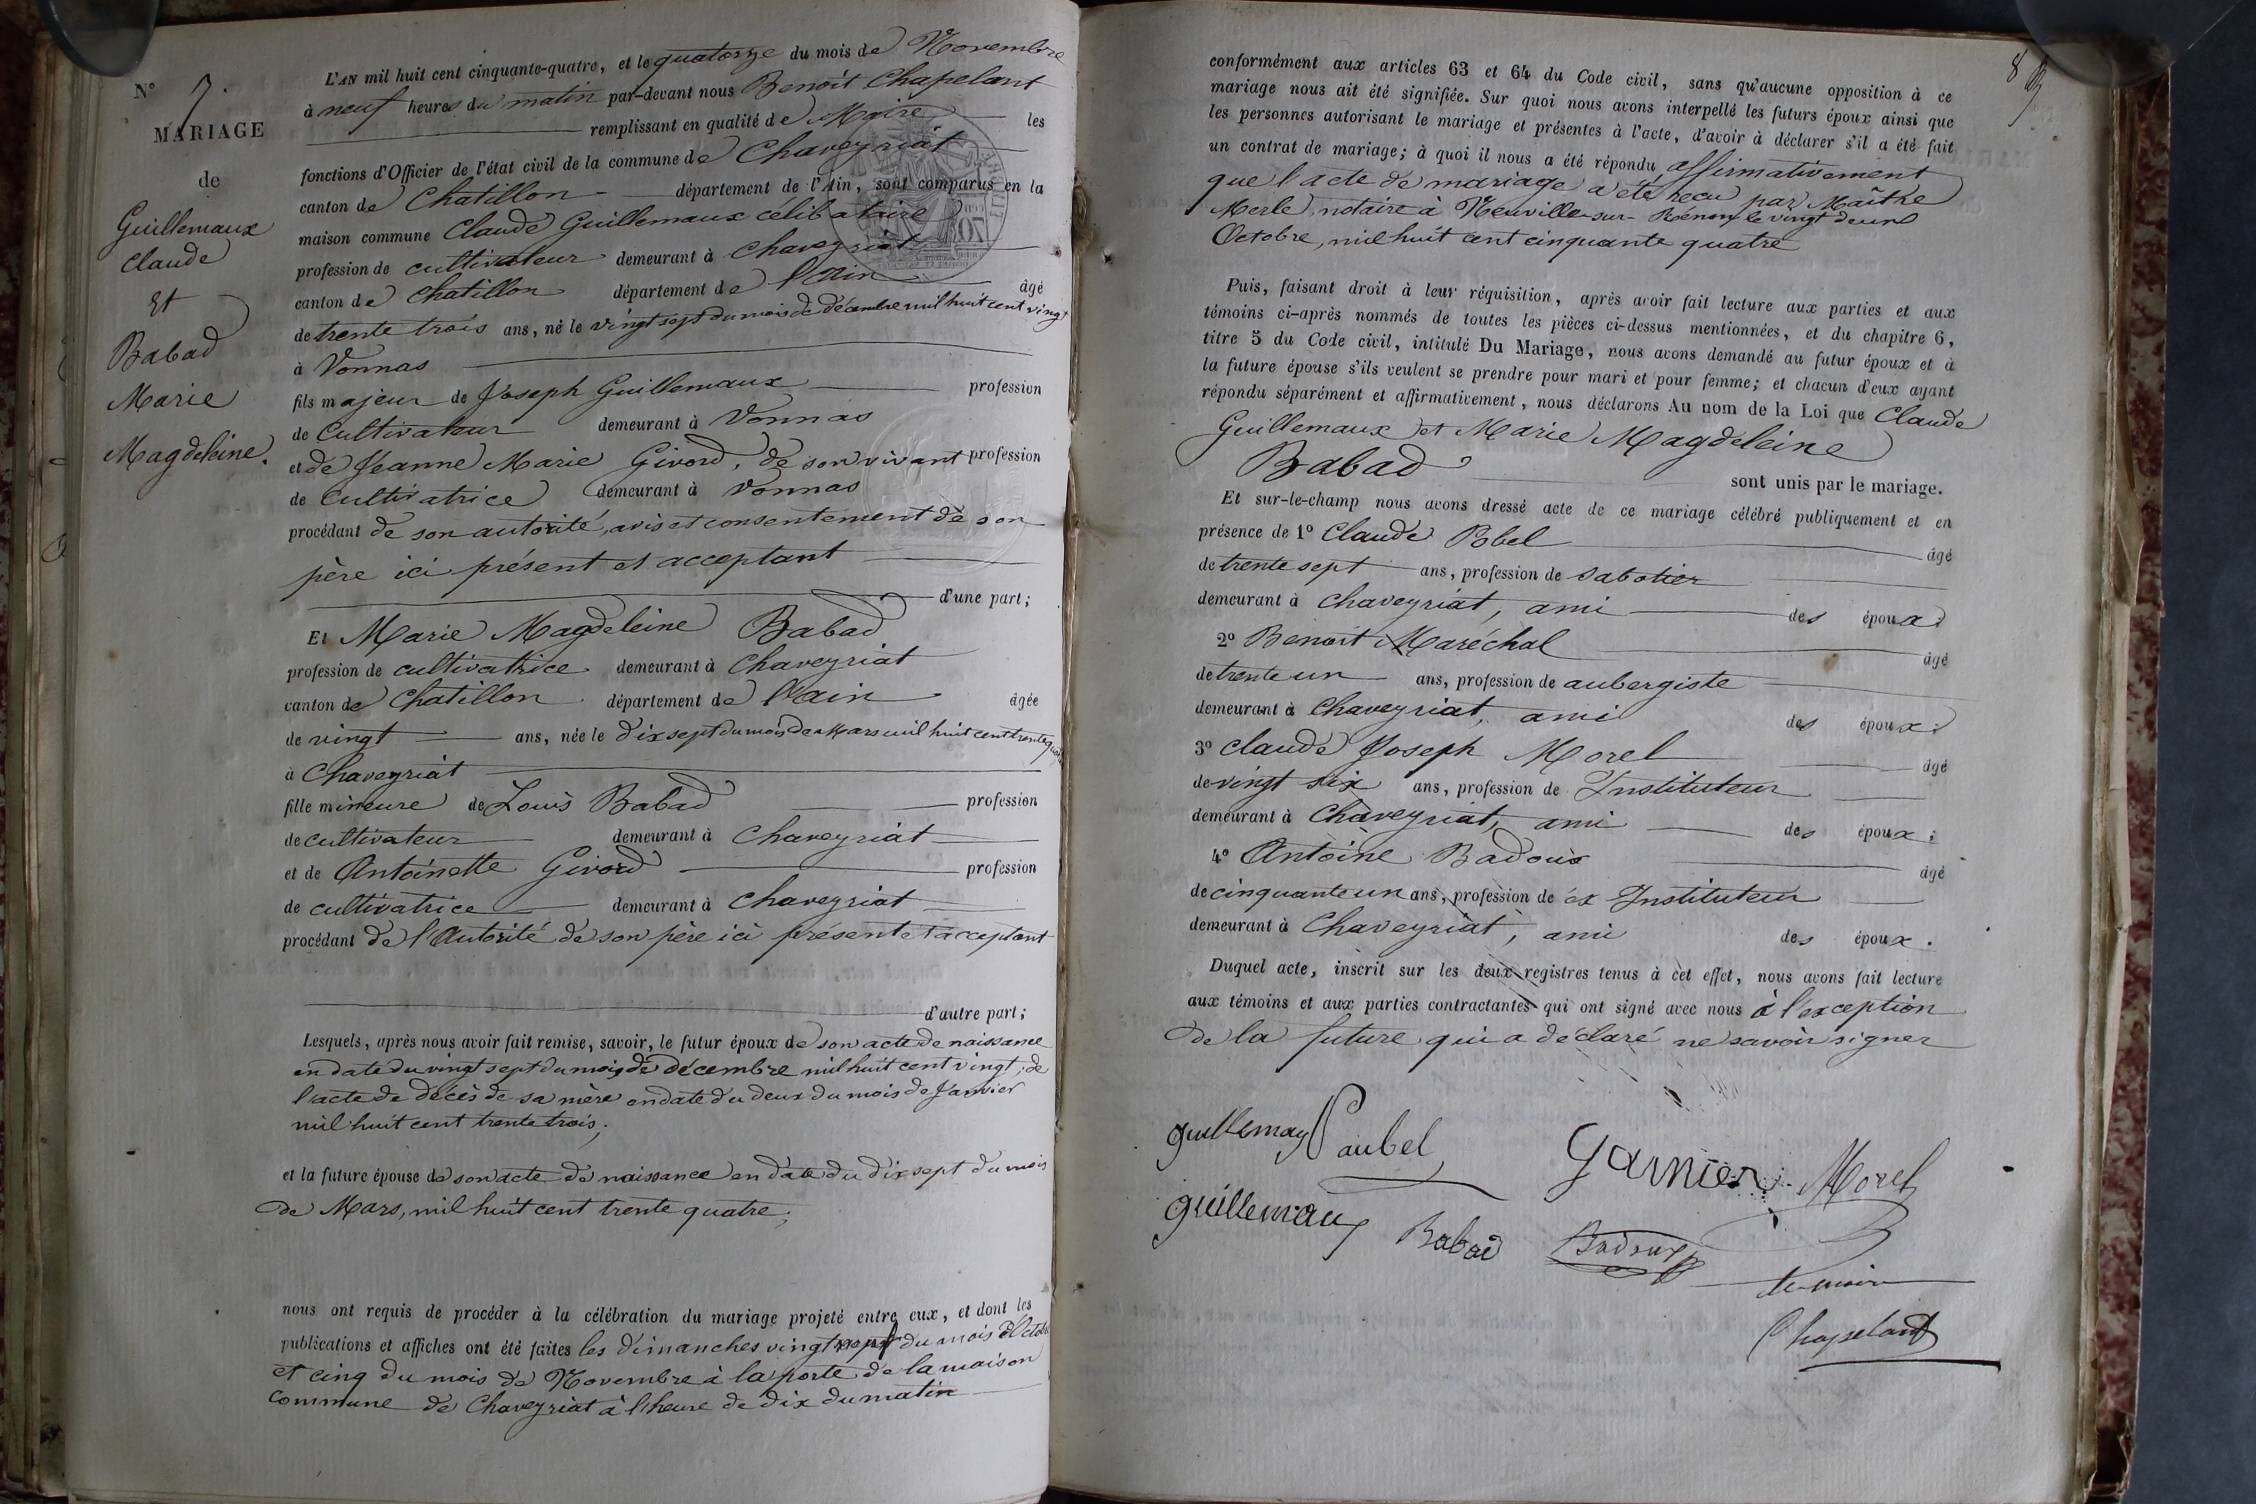 N° 7.
MARIAGE
de
Guillemaux
Claude
Et
Babad
Marie
Magdeleine.
L'AN mil huit cent cinquante-quatre, et le quatorze du mois de Novembre
à neuf heures du matin par-devant nous Benoît Chapelant
remplissant en qualité de Maire les
fonctions d'Officier de l'état civil de la commune de Chaveyriat
canton de Chatillon département de l'Ain, sont comparus en la
maison commune Claude Guillemaux célibataire
profession de cultivateur demeurant à Chaveyriat
canton de Chatillon département de l'Ain âgé
de trente trois ans, né le vingt sept du mois de décembre mil huit cent vingt
à Vonnas
fils majeur de Joseph Guillemaux profession
de Cultivateur demeurant à Vonnas
et de Jeanne Marie Givord, de son vivant profession
de Cultivatrice demeurant à Vonnas
procédant de son autorité, avis et consentement de son
père ici présent et acceptant
d'une part;
Et Marie Magdeleine Babad
profession de cultivatrice demeurant à Chaveyriat
canton de Chatillon département de l'Ain âgée
de vingt ans, née le dix sept du mois de Mars mil huit cent trente quatre
à Chaveyriat
fille mineure de Louis Babad profession
de cultivateur demeurant à Chaveyriat
et de Antoinette Givord profession
de cultivatrice demeurant à Chaveyriat
procédant de l'Autorité de son père ici présent et acceptant
d'autre part;
Lesquels, après nous avoir fait remise, savoir, le futur époux de son acte de naissance
en date du vingt sept du mois de décembre mil huit cent vingt, de
l'acte de décès de sa mère en date du deux du mois de Janvier
mil huit cent trente trois;
et la future épouse de son acte de naissance en date du dix sept du mois
de Mars, mil huit cent trente quatre;
nous ont requis de procéder à la célébration du mariage projeté entre eux, et dont les
publications et affiches ont été faites les dimanches vingt neuf du mois d'Octobre
et cinq du mois de Novembre à la porte de la maison
commune de Chaveyriat à l'heure de dix du matin
8
conformément aux articles 63 et 64 du Code civil, sans qu'aucune opposition à ce
mariage nous ait été signifiée. Sur quoi nous avons interpellé les futurs époux ainsi que
les personnes autorisant le mariage et présentes à l'acte, d'avoir à déclarer s'il a été fait
un contrat de mariage; à quoi il nous a été répondu affirmativement
que l'acte de mariage a été reçu par Maître
Merle, notaire à Neuville-sur-Renon le vingt deux
Octobre, mil huit cent cinquante quatre
Puis, faisant droit à leur réquisition, après avoir fait lecture aux parties et aux
témoins ci-après nommés de toutes les pièces ci-dessus mentionnées, et du chapitre 6,
titre 5 du Code civil, intitulé Du Mariage, nous avons demandé au futur époux et à
la future épouse s'ils veulent se prendre pour mari et pour femme; et chacun d'eux ayant
répondu séparément et affirmativement, nous déclarons Au nom de la Loi que Claude
Guillemaux et Marie Magdeleine
Babad sont unis par le mariage.
Et sur-le-champ nous avons dressé acte de ce mariage célébré publiquement et en
présence de 1° Claude Pobel âgé
de trente sept ans, profession de Sabotier
demeurant à Chaveyriat, ami des époux;
2° Benoit Maréchal âgé
de trente un ans, profession de aubergiste
demeurant à Chaveyriat, ami des époux;
3° Claude Joseph Morel âgé
de vingt six ans, profession de Instituteur
demeurant à Chaveyriat, ami des époux;
4° Antoine Badoux âgé
de cinquante un ans, profession de ex Instituteur
demeurant à Chaveyriat, ami des époux.
Duquel acte, inscrit sur les deux registres tenus à cet effet, nous avons fait lecture
aux témoins et aux parties contractantes qui ont signé avec nous à l'exception
de la future qui a déclaré ne savoir signer
Guillemaux Paubel Garnier Morel
Guillemaux Babad Badoux
Le maire
Chapelant